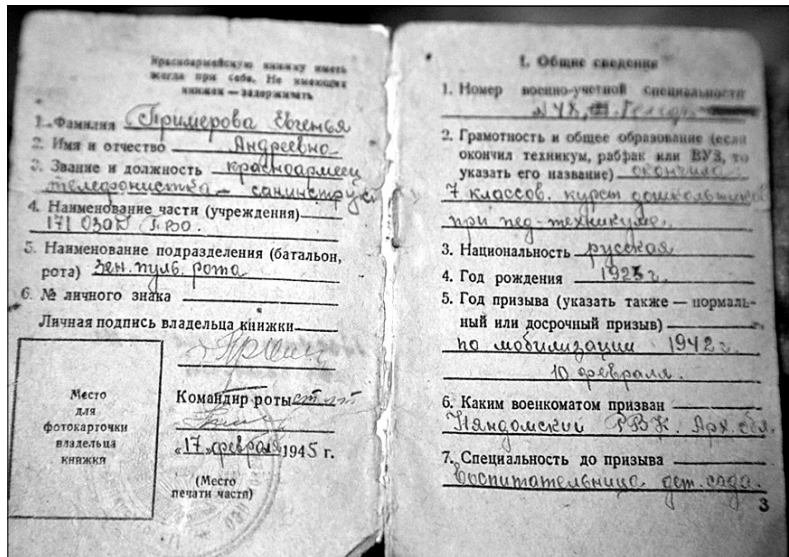 Красноармейскую книжку иметь
всегда при себе. Не имеющих
книжек — задерживать
1. Фамилия Примерова Евгенья
2. Имя и отчество Андреевна
3. Звание и должность красноармеец
телефонистка — санинструк
4. Наименование части (учреждения)
171 ОЗАД
5. Наименование подразделения (батальон,
рота) Зен. пульр. рота
6. № личного знака
Личная подпись владельца книжки
Место
для
фотокарточки
владельца
книжки
Командир роты ст лт
«17» февраля 1945 г.
(Место
печати части)
I. Общие сведения
1. Номер военно-учетной специальности
ВУС
2. Грамотность и общее образование (если
окончил техникум, рабфак или ВУЗ, то
указать его название) окончила
7 классов. курсы дошкольников
при пед-техникуме.
3. Национальность русская
4. Год рождения 1923 г.
5. Год призыва (указать также — нормаль-
ный или досрочный призыв)
по мобилизации 1942 г.
10 февраля.
6. Каким военкоматом призван
Няндомский РВК. Арх. обл.
7. Специальность до призыва
воспитательница дет. сада.
3